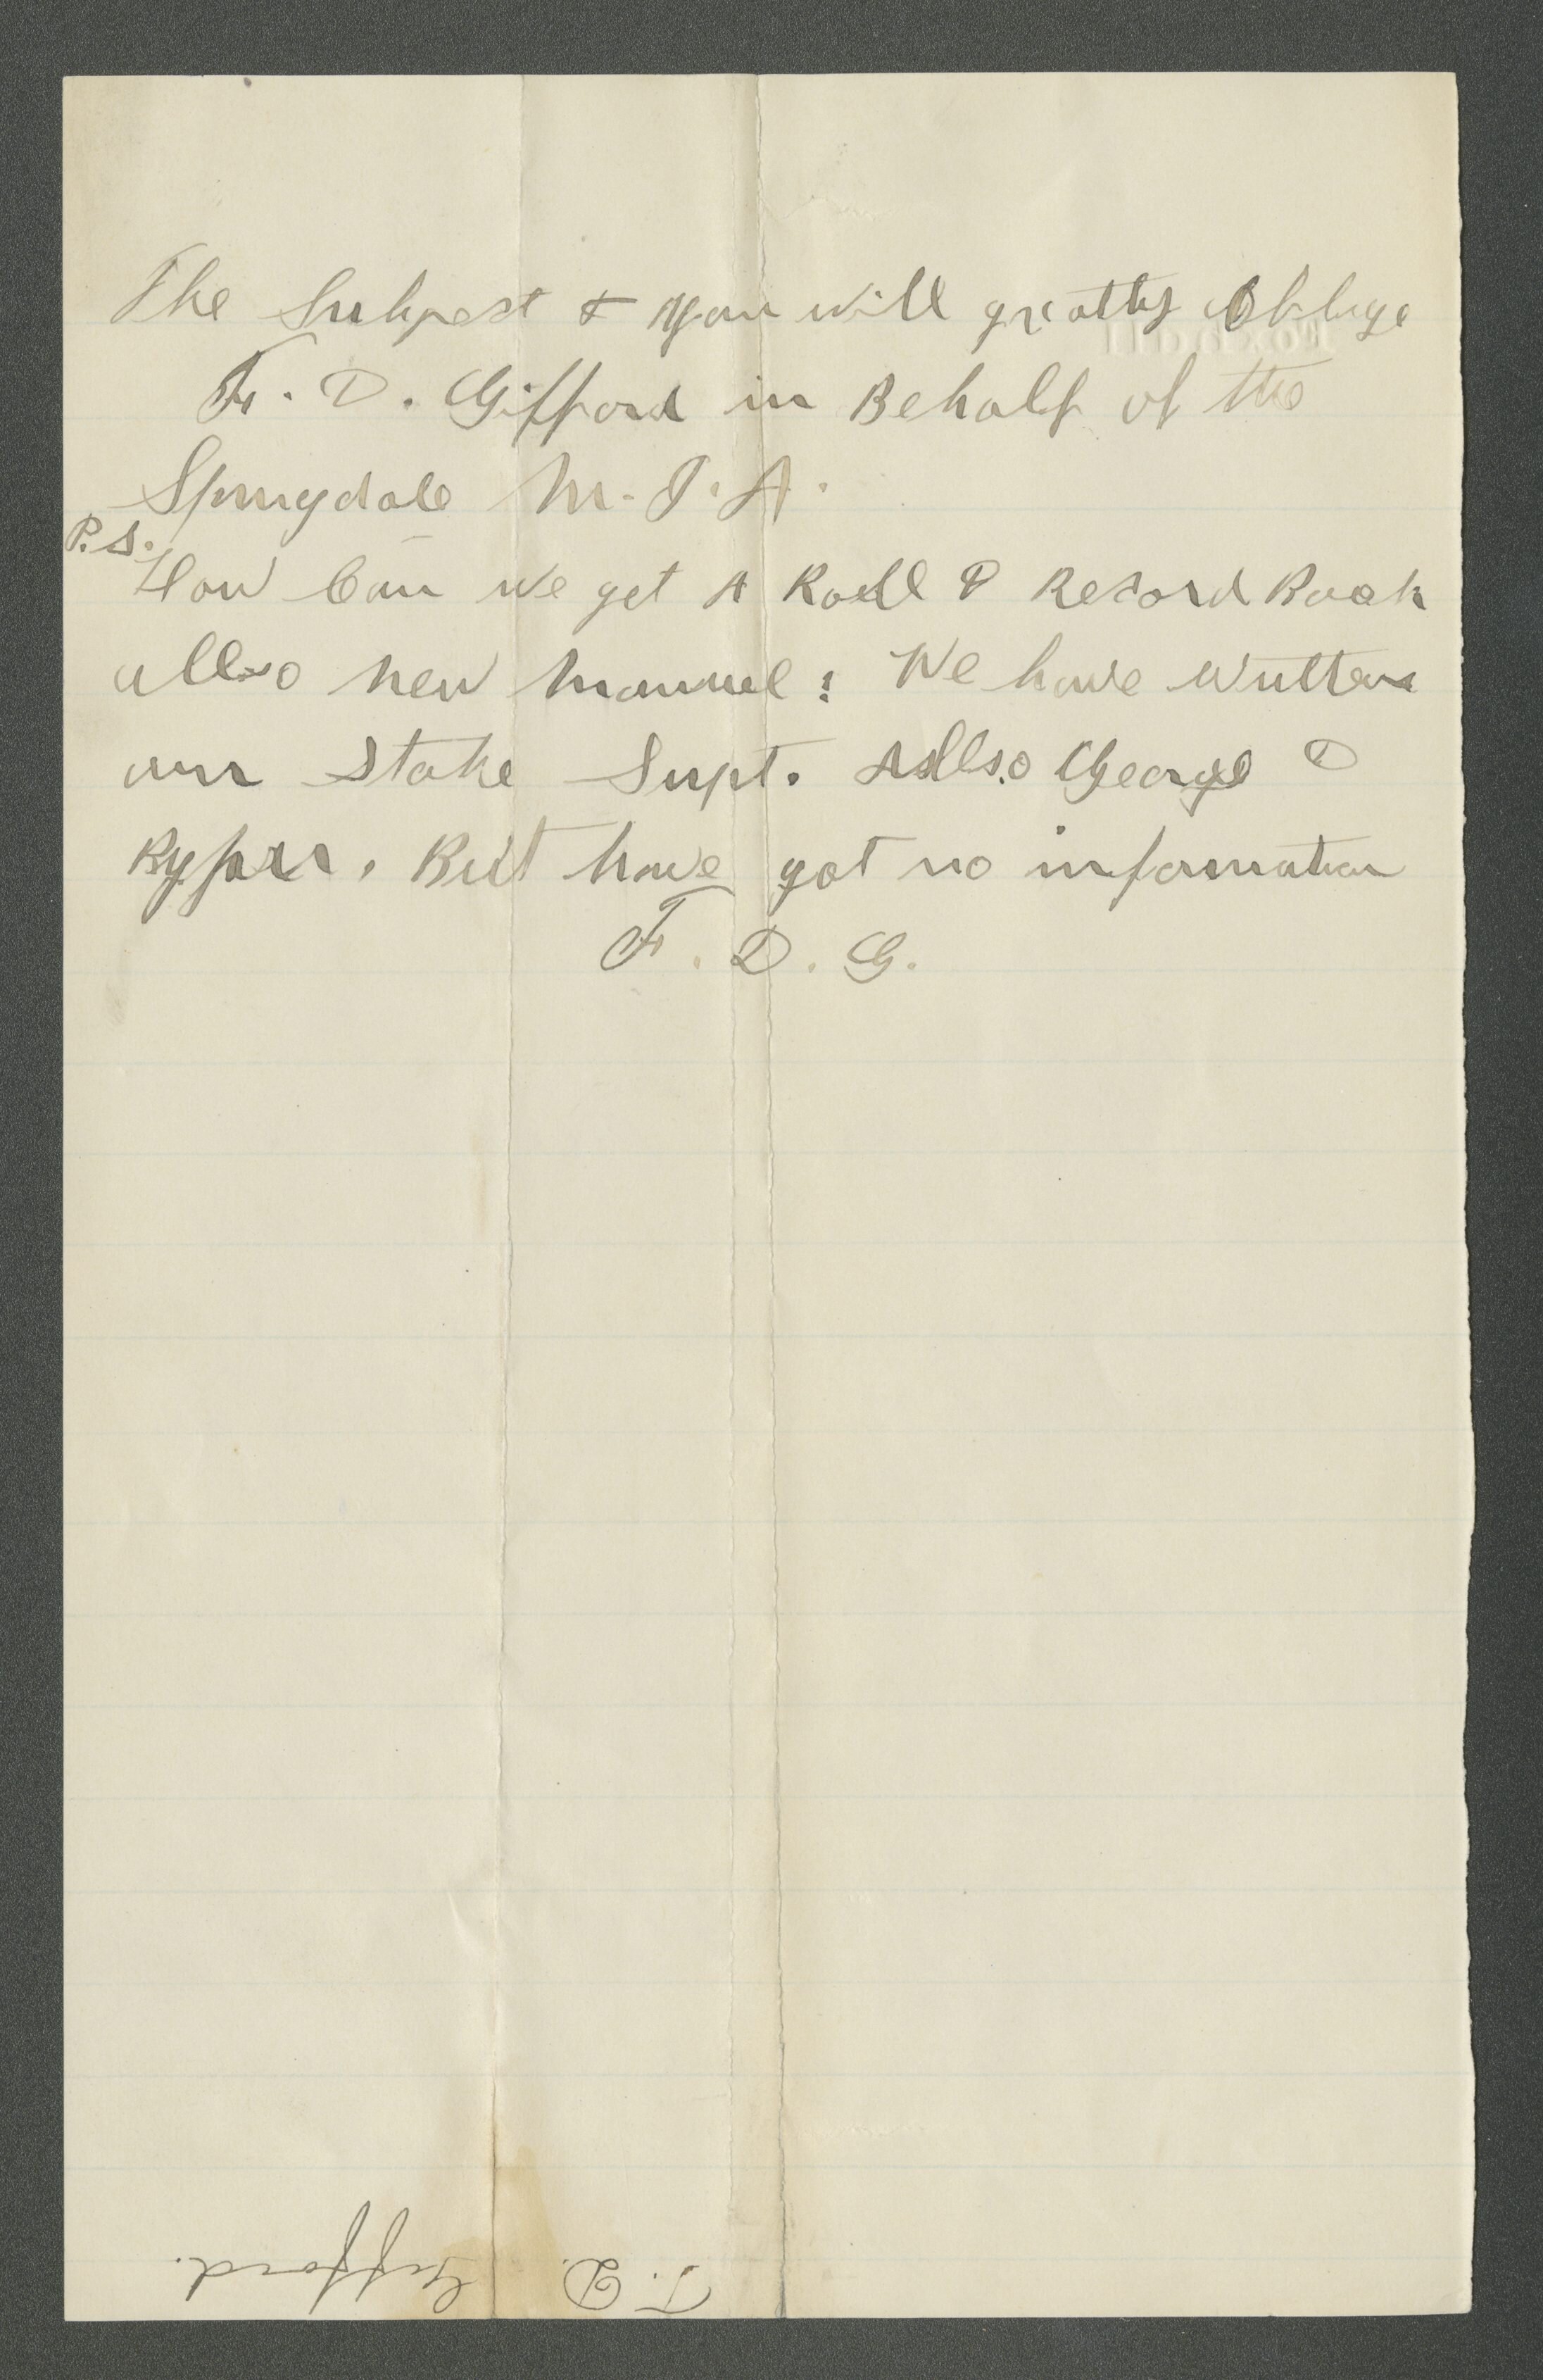 The Subject & you will greatly Oblige
F. D. Gifford in Behalf of the
Springdale M. I. A.
P.S.
How Can we get A Roll & Record Book
allso new manuel: We have written
our Stake Supt. Allso George D
But have got no information
F. D. G.
F. D. Gifford.